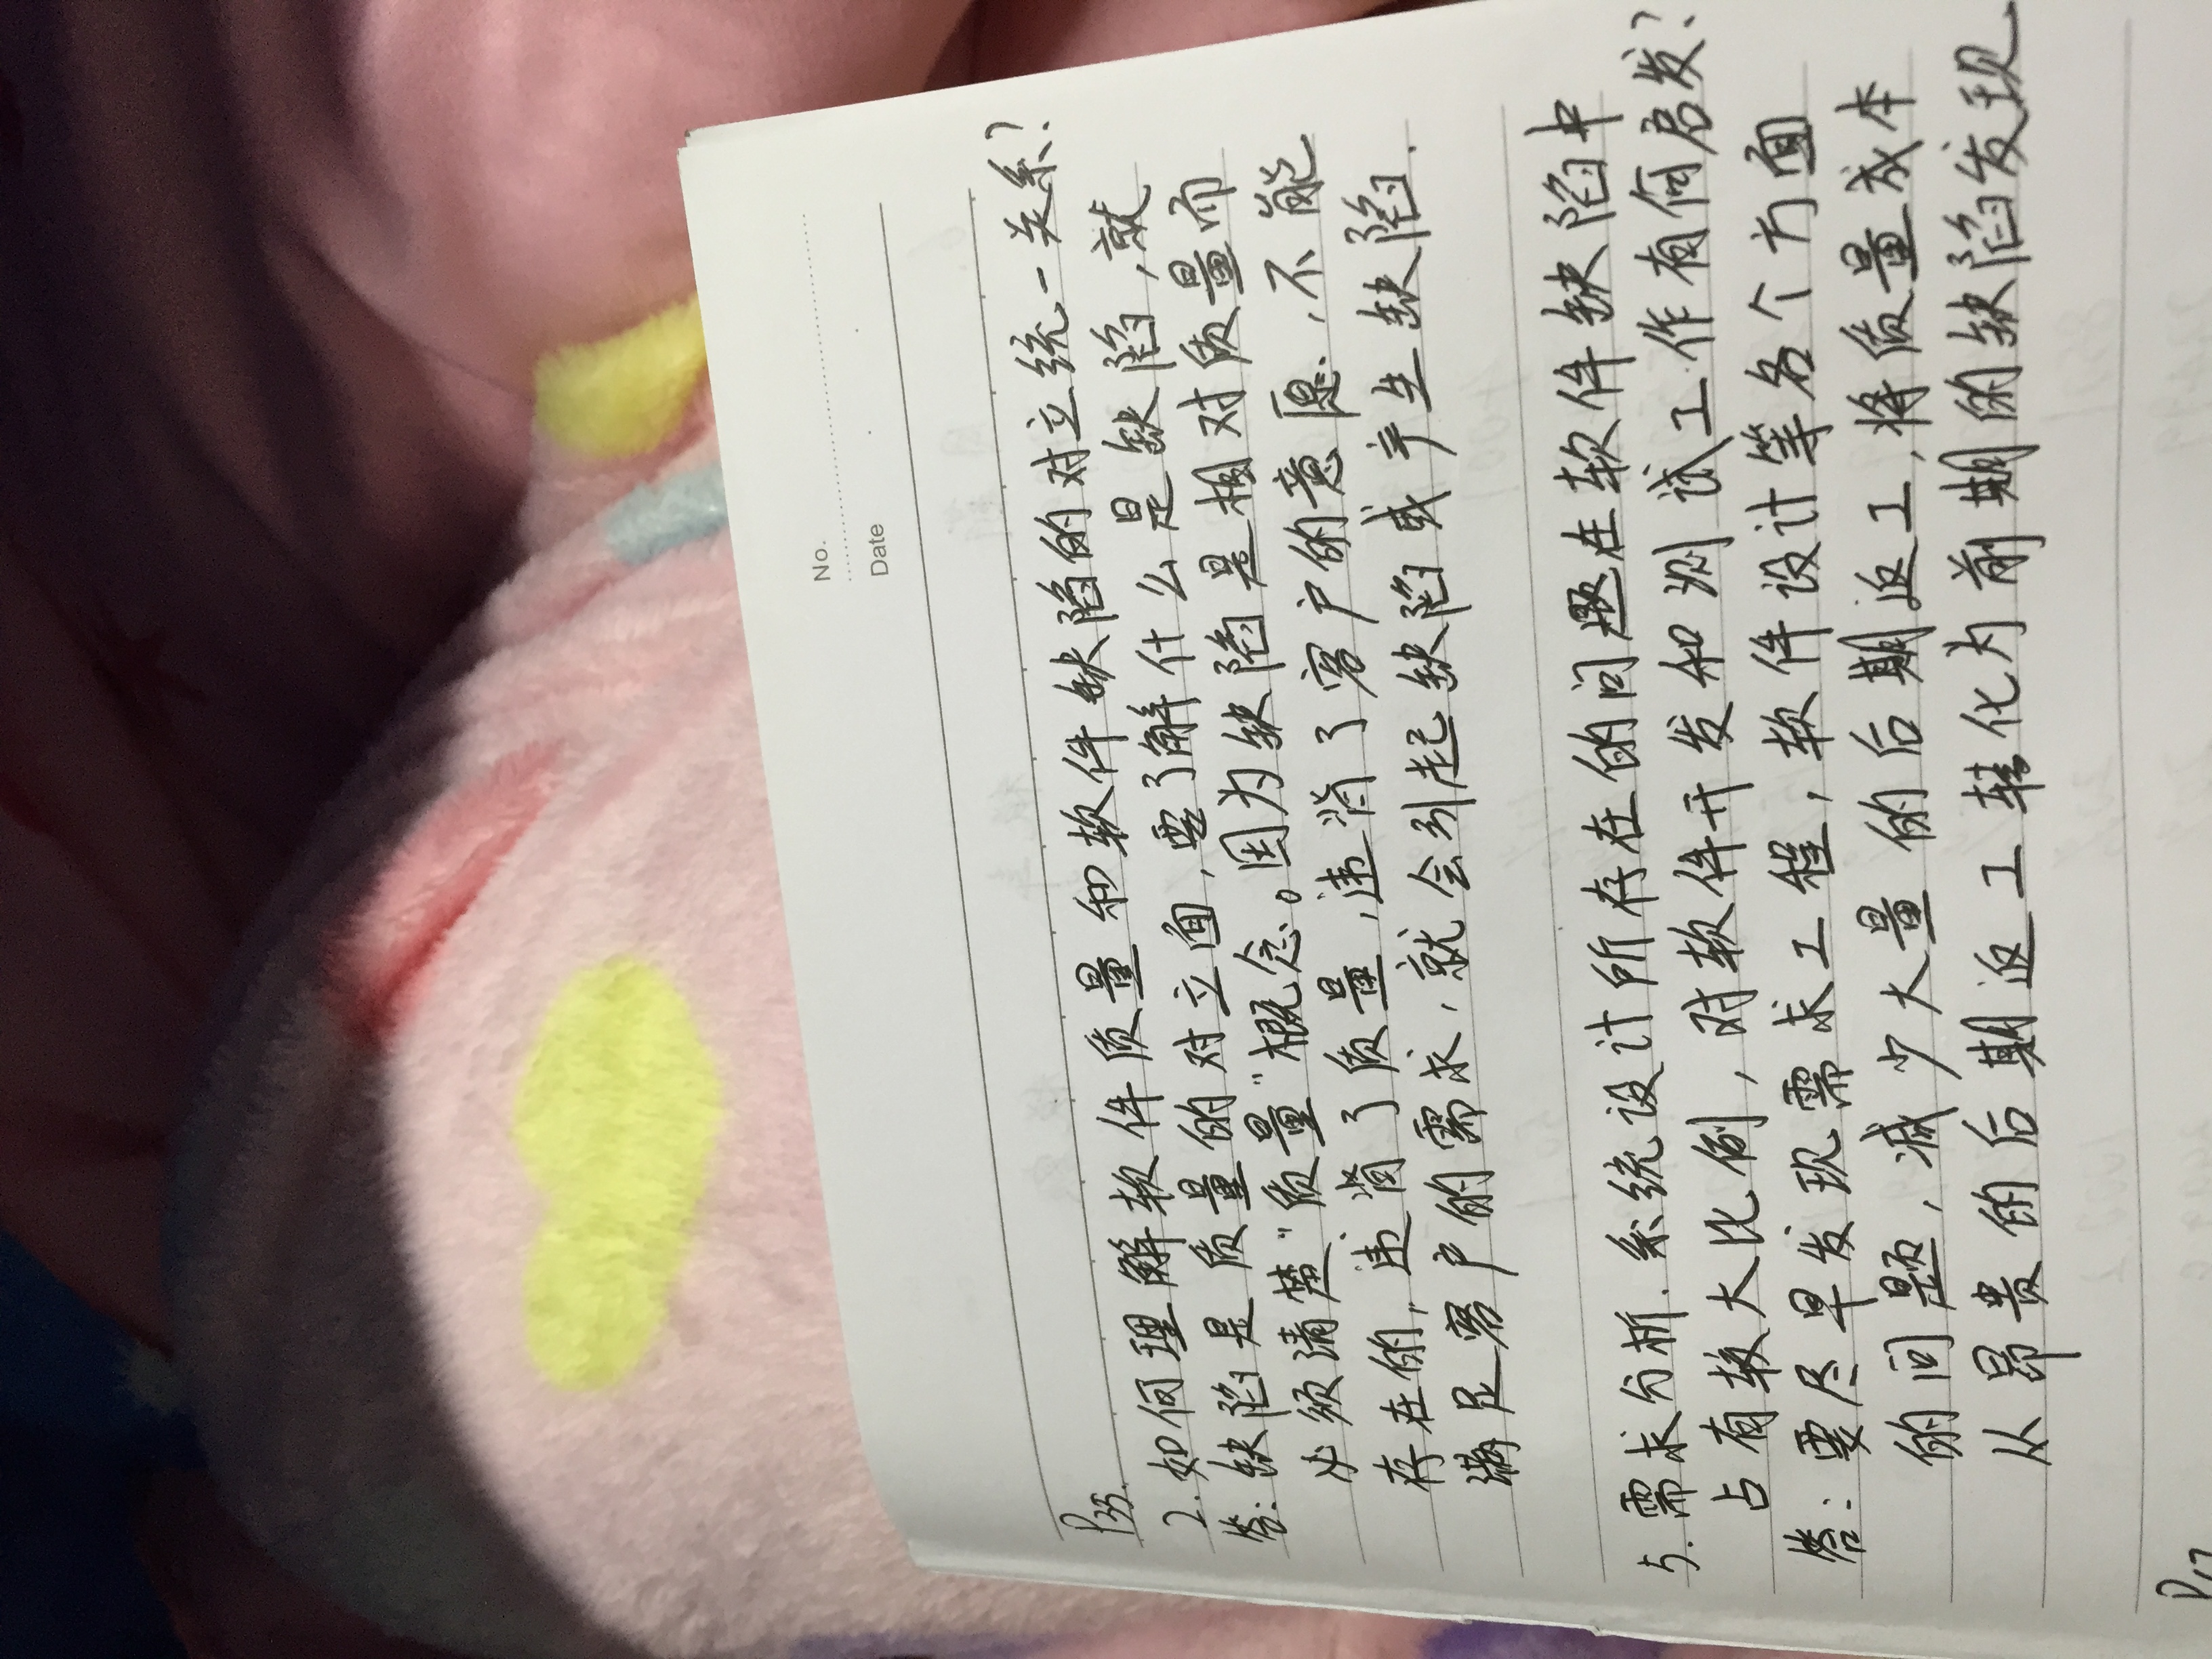 No.
Date
P35.
2.如何理解软件质量和软件缺陷的对立统一关系?
答:缺陷是质量的对立面,要了解什么是缺陷,就
必须清楚"质量"概念。因为缺陷是相对质量而
存在的,违背了质量,违背了客户的意愿,不能
满足客户的需求,就会引起缺陷或产生缺陷.
5.需求分析.系统设计所存在的问题在软件缺陷中
占有较大比例,对软件开发和测试工作有何启发?
答:要尽早发现需求工程,软件设计等各个方面
的问题,减少大量的后期返工,将质量成本
从昂贵的后期返工转化为前期的缺陷发现